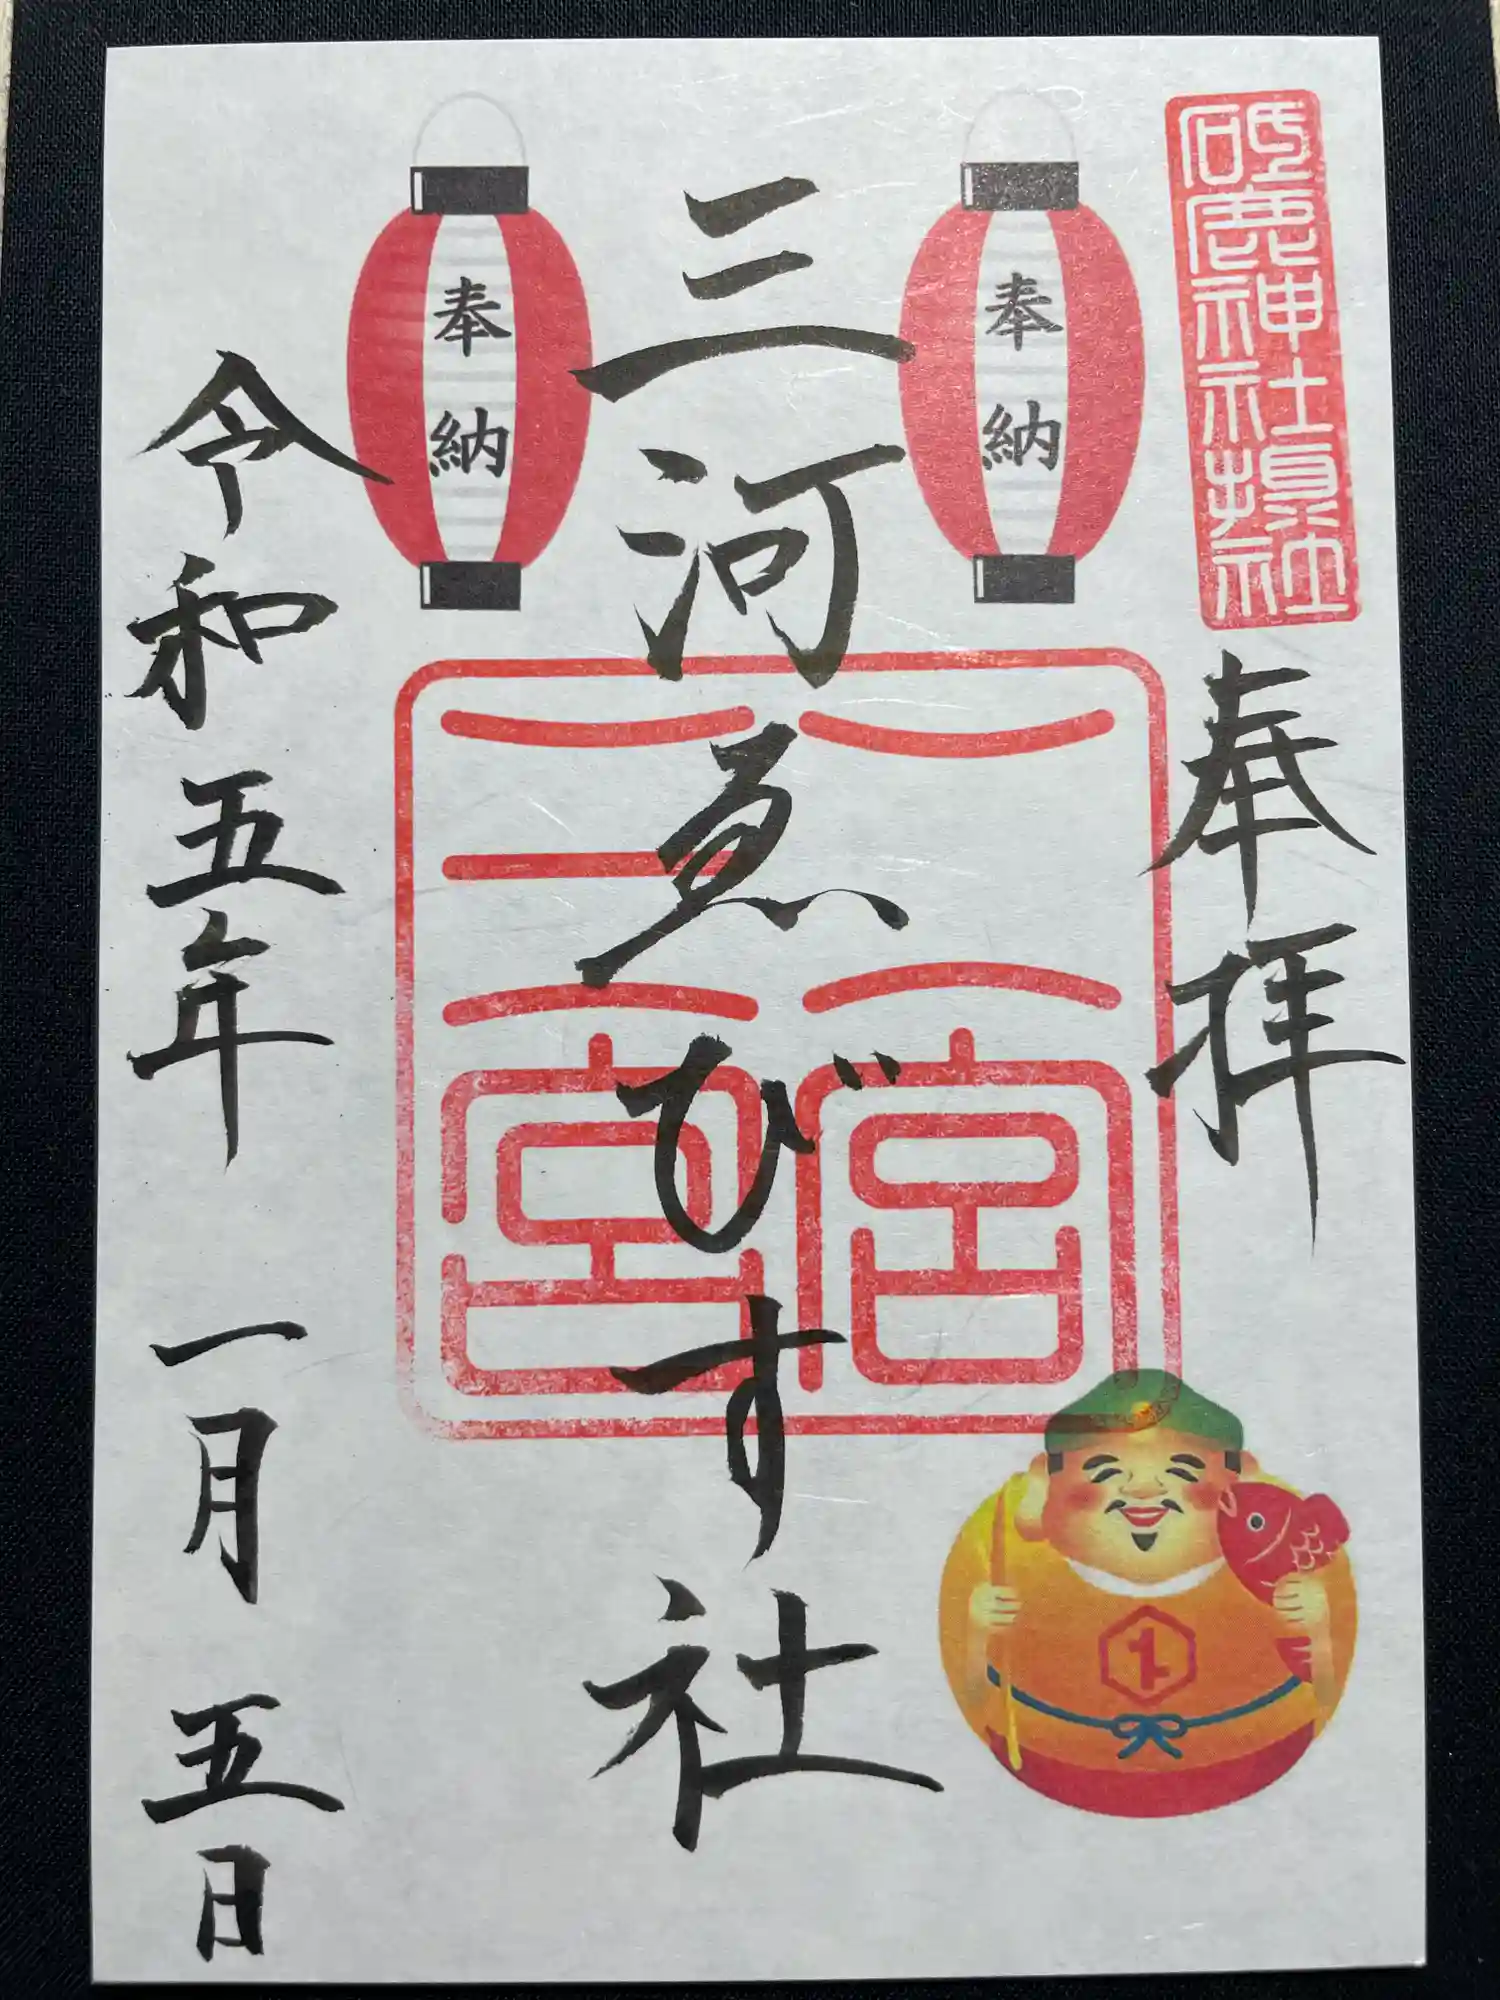 砥鹿神社
奉拝
奉納
三河ゑびす社
二宮
三宮
奉納
令和五年 一月 五日